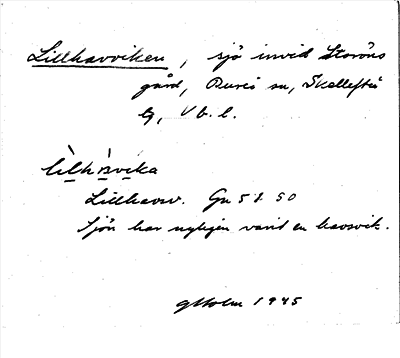 Lillhavviken, sjö invid Storöns
gård, Bureå sn, Skellefteå
tg, Vb. l.
Lillhavsv. Gn 58 50
Sjön har nyligen varit en havsvik.
GHolm 1945